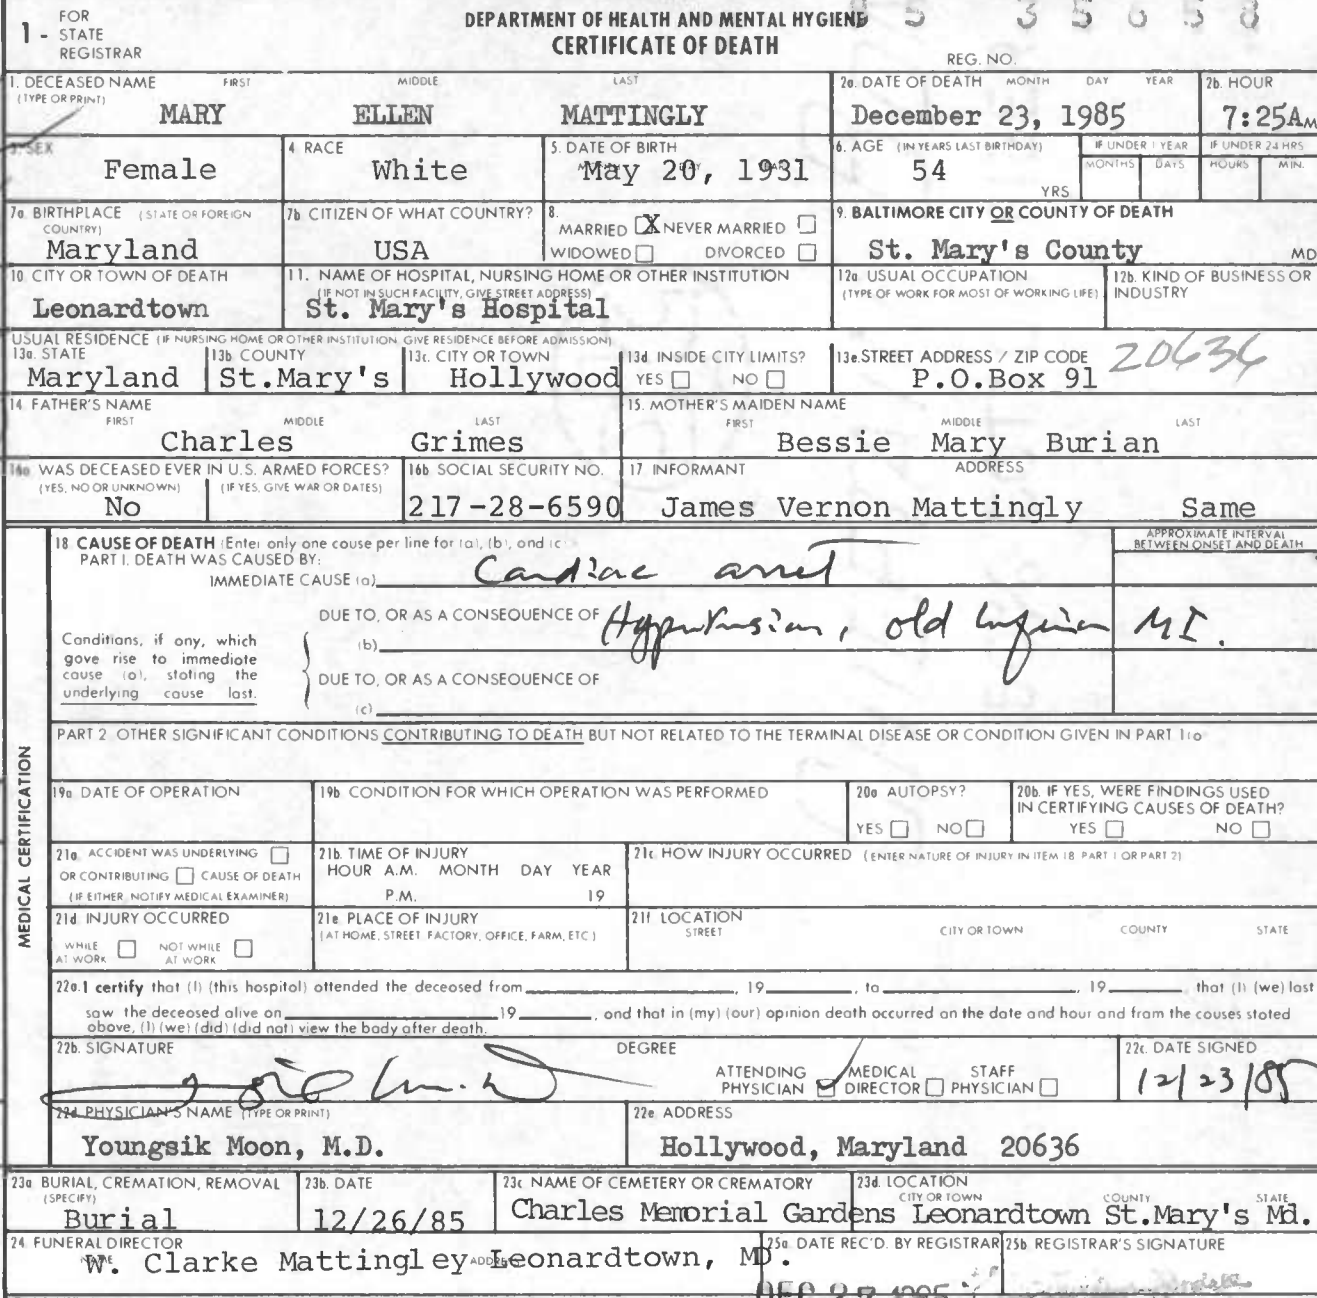 FOR
1 - STATE
REGISTRAR
DEPARTMENT OF HEALTH AND MENTAL HYGIENE
CERTIFICATE OF DEATH
REG. NO.
1. DECEASED NAME FIRST MIDDLE LAST
(TYPE OR PRINT)
MARY ELLEN MATTINGLY
2a. DATE OF DEATH MONTH DAY YEAR
December 23, 1985
2b. HOUR
7:25AM
3. SEX
Female
4. RACE
White
5. DATE OF BIRTH
May 20, 1931
6. AGE (IN YEARS LAST BIRTHDAY)
54
YRS
IF UNDER 1 YEAR
MONTHS DAYS
IF UNDER 24 HRS
HOURS MIN.
7a. BIRTHPLACE (STATE OR FOREIGN
COUNTRY)
Maryland
7b. CITIZEN OF WHAT COUNTRY?
USA
8.
MARRIED X NEVER MARRIED
WIDOWED DIVORCED
9. BALTIMORE CITY OR COUNTY OF DEATH
St. Mary's County MD
10. CITY OR TOWN OF DEATH
Leonardtown
11. NAME OF HOSPITAL, NURSING HOME OR OTHER INSTITUTION
(IF NOT IN SUCH FACILITY, GIVE STREET ADDRESS)
St. Mary's Hospital
12a. USUAL OCCUPATION
(TYPE OF WORK FOR MOST OF WORKING LIFE)
12b. KIND OF BUSINESS OR
INDUSTRY
USUAL RESIDENCE (IF NURSING HOME OR OTHER INSTITUTION GIVE RESIDENCE BEFORE ADMISSION)
13a. STATE
Maryland
13b COUNTY
St.Mary's
13c. CITY OR TOWN
Hollywood
13d INSIDE CITY LIMITS?
YES NO
13e. STREET ADDRESS / ZIP CODE
P.O.Box 91 20636
14 FATHER'S NAME
FIRST MIDDLE LAST
Charles Grimes
15. MOTHER'S MAIDEN NAME
FIRST MIDDLE LAST
Bessie Mary Burian
16a WAS DECEASED EVER IN U.S. ARMED FORCES?
(YES, NO OR UNKNOWN) (IF YES, GIVE WAR OR DATES)
No
16b SOCIAL SECURITY NO.
217-28-6590
17 INFORMANT ADDRESS
James Vernon Mattingly Same
MEDICAL CERTIFICATION
18. CAUSE OF DEATH (Enter only one cause per line for (a), (b), and (c)
PART I. DEATH WAS CAUSED BY:
IMMEDIATE CAUSE (a) Cardiac arrest
APPROXIMATE INTERVAL
BETWEEN ONSET AND DEATH
DUE TO, OR AS A CONSEQUENCE OF
(b) Hypertension, old inferior MI.
Conditions, if any, which
gave rise to immediate
cause (a), stating the
underlying cause last.
DUE TO, OR AS A CONSEQUENCE OF
(c)
PART 2 OTHER SIGNIFICANT CONDITIONS CONTRIBUTING TO DEATH BUT NOT RELATED TO THE TERMINAL DISEASE OR CONDITION GIVEN IN PART 1(a
19a. DATE OF OPERATION
19b CONDITION FOR WHICH OPERATION WAS PERFORMED
20a AUTOPSY?
YES NO
20b. IF YES, WERE FINDINGS USED
IN CERTIFYING CAUSES OF DEATH?
YES NO
21a. ACCIDENT WAS UNDERLYING
OR CONTRIBUTING CAUSE OF DEATH
(IF EITHER, NOTIFY MEDICAL EXAMINER)
21b. TIME OF INJURY
HOUR A.M. MONTH DAY YEAR
P.M. 19
21c HOW INJURY OCCURRED (ENTER NATURE OF INJURY IN ITEM 18 PART 1 OR PART 2)
21d. INJURY OCCURRED
WHILE NOT WHILE
AT WORK AT WORK
21e PLACE OF INJURY
(AT HOME, STREET FACTORY, OFFICE, FARM, ETC)
21f LOCATION
STREET CITY OR TOWN COUNTY STATE
22a. I certify that (I) (this hospital) attended the deceased from , 19 , to , 19 , that (I) (we) last
saw the deceased alive on 19 , and that in (my) (our) opinion death occurred on the date and hour and from the causes stated
above, (I) (we) (did) (did not) view the body after death.
22b. SIGNATURE DEGREE
ATTENDING MEDICAL STAFF
PHYSICIAN DIRECTOR PHYSICIAN
22c. DATE SIGNED
12/23/85
22d. PHYSICIAN'S NAME (TYPE OR PRINT)
Youngsik Moon, M.D.
22e. ADDRESS
Hollywood, Maryland 20636
23a BURIAL, CREMATION, REMOVAL
(SPECIFY)
Burial
23b. DATE
12/26/85
23c NAME OF CEMETERY OR CREMATORY
Charles Memorial Gardens
23d. LOCATION
CITY OR TOWN COUNTY STATE
Leonardtown St.Mary's Md.
24 FUNERAL DIRECTOR
W. Clarke Mattingley Leonardtown, MD.
25a. DATE REC'D. BY REGISTRAR
25b REGISTRAR'S SIGNATURE